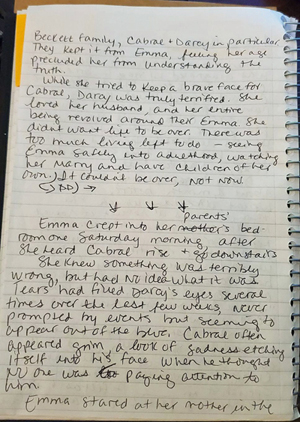 Beckett family, Cabral + Darcy in particular
They kept it from Emma, feeling her age
precluded her from understanding the
truth.
While she tried to keep a brave face for
Cabral, Darcy was truly terrified. She
loved her husband, and her entire
being revolved around their Emma. She
didn't want life to be over. There was
too much living left to do - seeing
Emma safely into adulthood, watching
her marry and have children of her
own. It couldn't be over, not now.
parents'
Emma crept into her mother's bed-
room one Saturday morning, after
she heard Cabral rise + go downstairs
She knew something was terribly
wrong, but had no idea what it was
Tears had filled Darcy's eyes several
times over the last few weeks, never
prompted by events but seeming to
appear out of the blue. Cabral often
appeared grim, a look of sadness etching
itself into his face when he thought
no one was paying attention to
him.
Emma stared at her mother in the